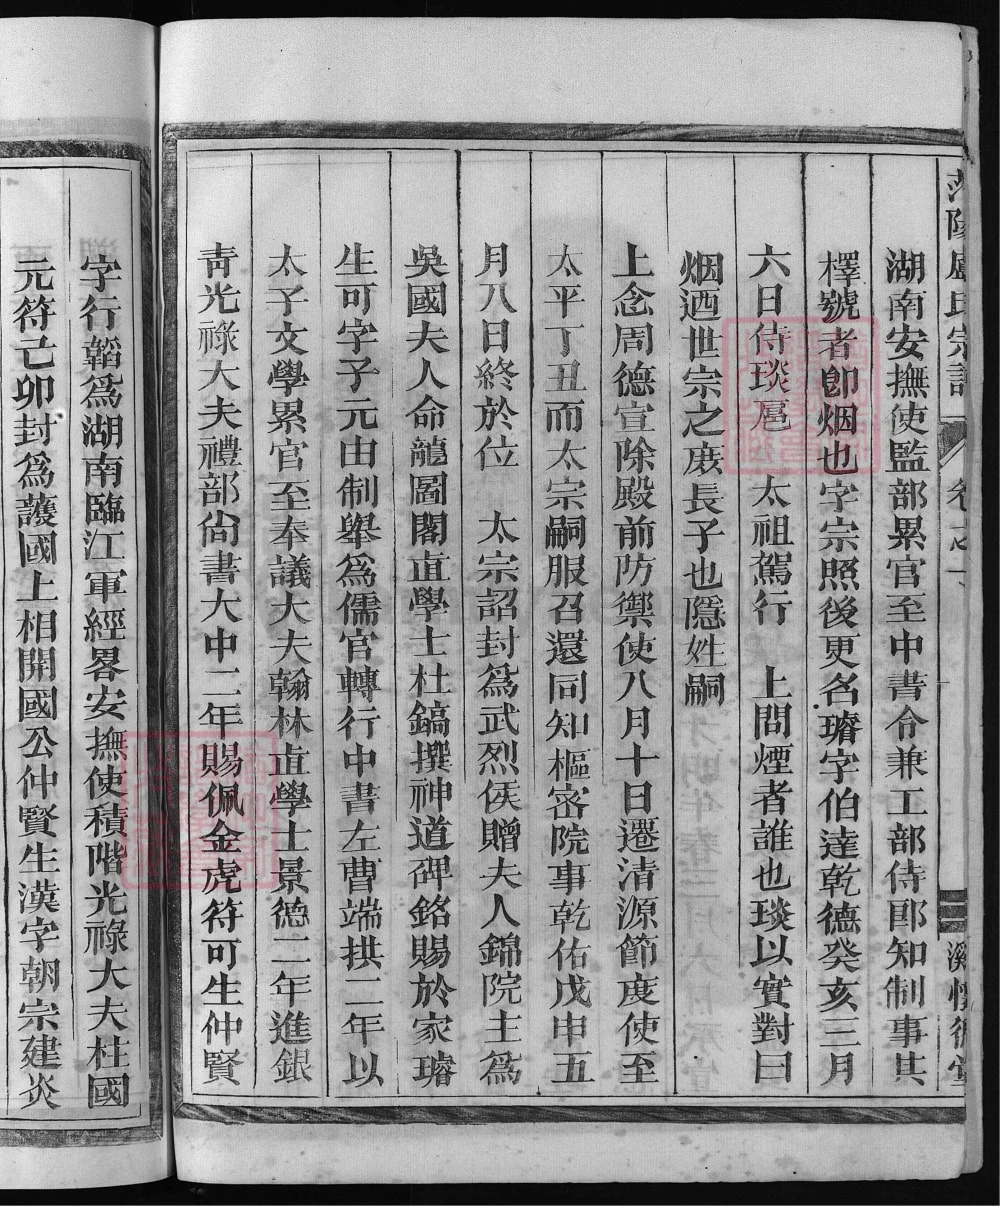 范陽盧氏宗譜 卷之一 二 溪
湖南安撫使監部累官至中書令兼工部侍郎知制事其
檡號者卽烟也字宗照後更名璿字伯達乾德癸亥三月
六日侍琰扈 太祖駕行 上問煙者誰也琰以實對曰
烟迺世宗之庻長子也隱姓嗣
上念周德宣除殿前防禦使八月十日遷清源節度使至
太平丁丑而太宗嗣服召還同知樞密院事乾佑戊申五
月八日終於位 太宗詔封爲武烈侯贈夫人錦院主爲
吳國夫人命龍圖閣直學士杜鎬撰神道碑銘賜於家璿
生可字子元由制舉爲儒官轉行中書左曹端拱二年以
太子文學累官至奉議大夫翰林直學士景德二年進銀
青光祿大夫禮部尙書大中二年賜佩金虎符可生仲賢
字行韜爲湖南臨江軍經畧安撫使積階光祿大夫柱國
元符己卯封爲護國上相開國公仲賢生漢字朝宗建炎